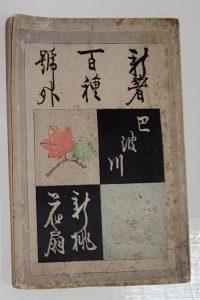 新著
百種
號外
巴波川
新桃
花扇